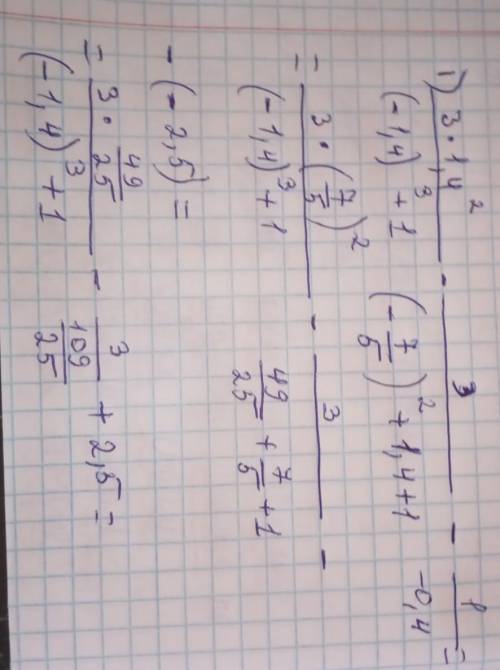 1) (3 · 1,4²)/((-1,4)³ + 1) - 3/((-7/5)² + 1,4 + 1) - 1/(-0,4) =
= (3 · (7/5)²)/((-1,4)³ + 1) - 3/(49/25 + 7/5 + 1) -
- (-2,5) =
= (3 · 49/25)/((-1,4)³ + 1) - 3/(109/25) + 2,5 =